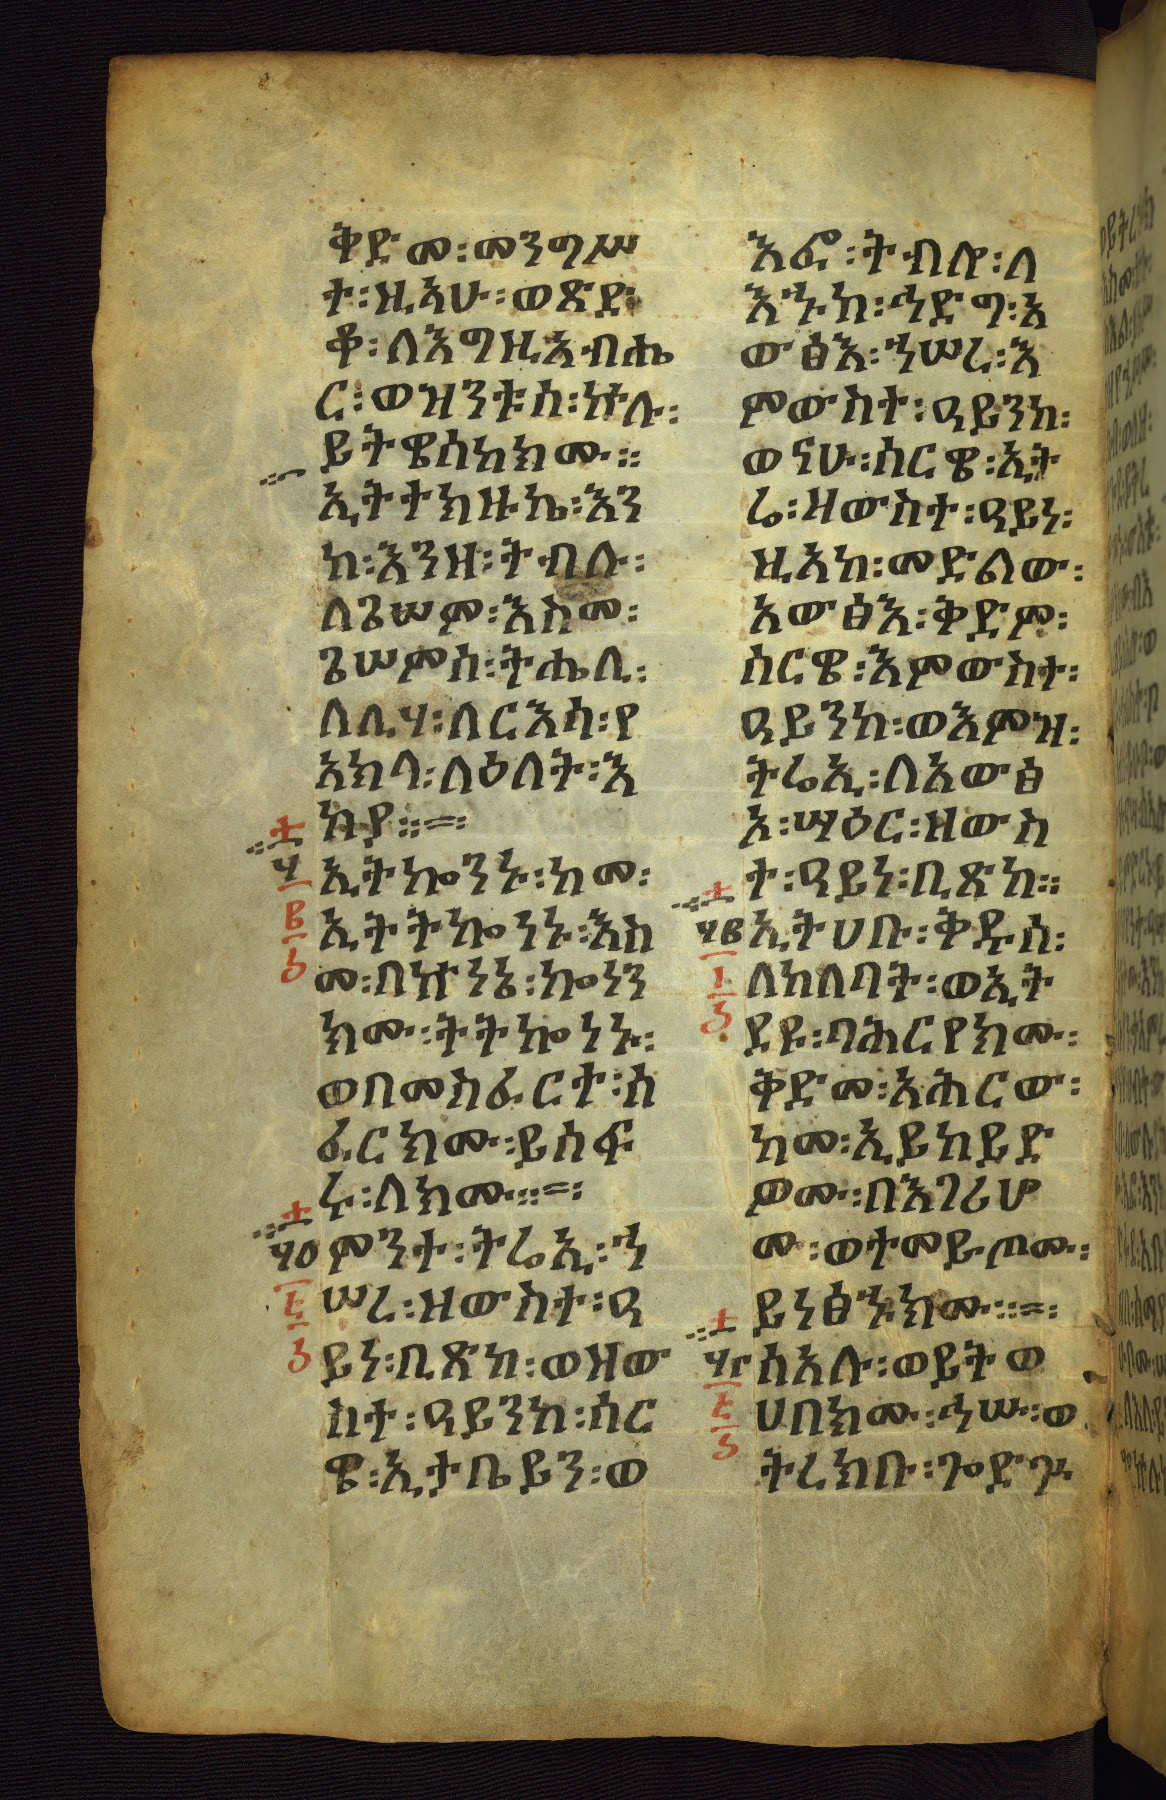 ቅድመ፡መንግሥ
ተ፡ዚኣሁ፡ወጽድ
ቆ፡ለእግዚኣብሔ
ር፡ወዝንቱሰ፡ኵሉ፡
ይትዌሰከክሙ።
ኢትተክዙኬ፡እን
ከ፡እንዘ፡ትብሉ፡
ለጌሠም፡እስመ፡
ጌሠምሰ፡ትሔሊ፡
ለሊሃ፡ለርእሳ፡የ
አክላ፡ለዕለት፡እ
ከያ።
፶
፪
ኢትኰንኑ፡ከመ፡
ኢትትኰነኑ፡እስ
መ፡በኵነኔ፡ኰነን
ክሙ፡ትትኰነኑ፡
ወበመስፈርተ፡ሰ
ፈርክሙ፡ይሰፍ
ሩ፡ለክሙ።
፶፩
፭
ምንተ፡ትሬኢ፡ኀ
ሠረ፡ዘውስተ፡ዓ
ይነ፡ቢጽከ፡ወዘው
ስተ፡ዓይንከ፡ሰር
ዌ፡ኢታቤይን፡ወ
እፎ፡ትብሎ፡ለ
እኁከ፡ኅድግ፡እ
ውፅእ፡ኀሠረ፡እ
ምውስተ፡ዓይንከ፡
ወናሁ፡ሰርዌ፡ኢት
ሬ፡ዘውስተ፡ዓይነ፡
ዚኣከ፡መድልው፡
አውፅእ፡ቅድም፡
ሰርዌ፡እምውስተ፡
ዓይንከ፡ወእምዝ፡
ትሬኢ፡ለአውፅ
እ፡ሣዕር፡ዘውስ
ተ፡ዓይነ፡ቢጽከ።
፶፪
፲
ኢትሀቡ፡ቅዱሰ፡
ለከለባት፡ወኢት
ደዩ፡ባሕርየክሙ፡
ቅድመ፡አሕርው፡
ከመ፡ኢይከይድ
ዎሙ፡በእገሪሆ
ሙ፡ወተመይጦሙ፡
ይነፅኁክሙ።
፶፫
፭
ሰአሉ፡ወይትወ
ሀበክሙ፡ኅሡ፡ወ
ትረክቡ፡ጐድጉ